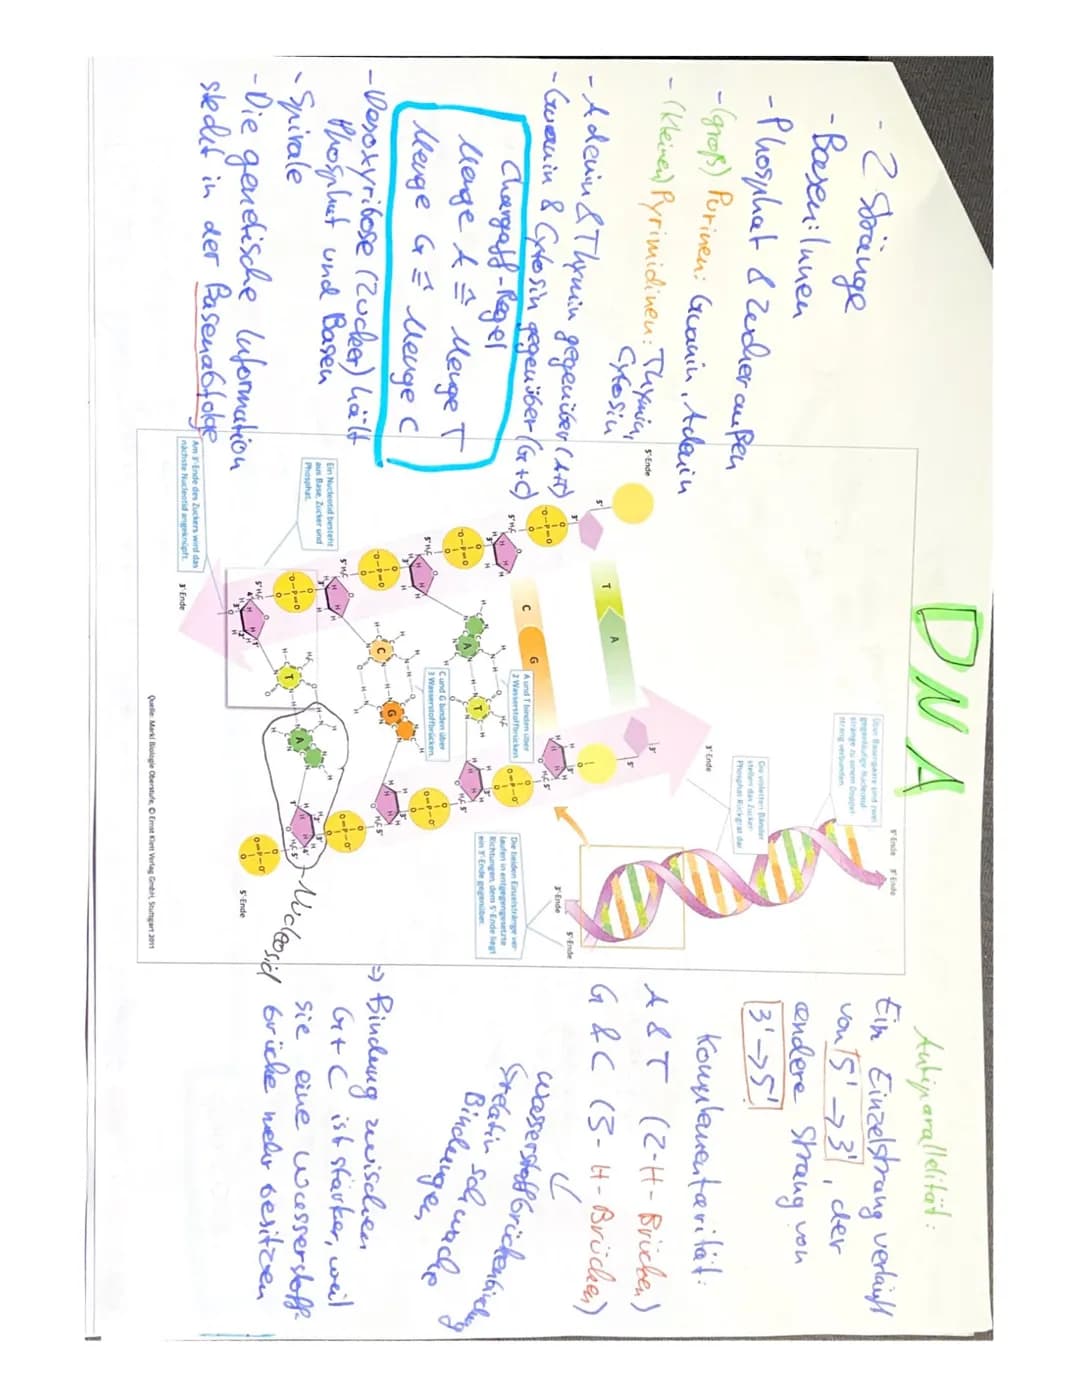 DNA
- 2 Stränge
- Basen: Innen
- Phosphat & Zucker außen
- (groß) Purinen: Guanin, Adenin
- (kleinen) Pyrimidinen: Thymin,
Cytosin
- Adenin & Thymin gegenüber (A+T)
- Guanin & Cytosin gegenüber (G+C)
Chargaff-Regel
Menge A ≙ Menge T
Menge G ≙ Menge C
- Desoxyribose (Zucker) hält
Phosphat und Basen
- Spirale
- Die genetische Information
steckt in der Basenabfolge
Über Basenpaare sind zwei
gegenläufige Nucleotid-
stränge zu einem Doppel-
strang verbunden.
5'-Ende 3'-Ende
Die violetten Bänder
stellen das Zucker-
Phosphat-Rückgrat dar.
3'-Ende
5'-Ende
Die beiden Einzelstränge ver-
laufen in entgegengesetzte
Richtungen, dem 5'-Ende liegt
ein 3'-Ende gegenüber.
5'-Ende
3'-Ende
T A
C G
A und T binden über
2 Wasserstoffbrücken.
A T
C und G binden über
3 Wasserstoffbrücken.
C G
T A
Ein Nucleotid besteht
aus Base, Zucker und
Phosphat.
Am 3'-Ende des Zuckers wird das
nächste Nucleotid angeknüpft.
3'-Ende
5'-Ende
Nucleosid
Quelle: Markl Biologie Oberstufe, © Ernst Klett Verlag GmbH, Stuttgart 2011
Antiparallelität:
Ein Einzelstrang verläuft
von 5' → 3', der
andere Strang von
3' → 5'
Komplementarität:
A & T (2-H-Brücken)
G & C (3-H-Brücken)
Wasserstoffbrückenbindung
relativ schwache
Bindungen,
=> Bindung zwischen
G + C ist stärker, weil
sie eine Wasserstoff-
brücke mehr besitzen